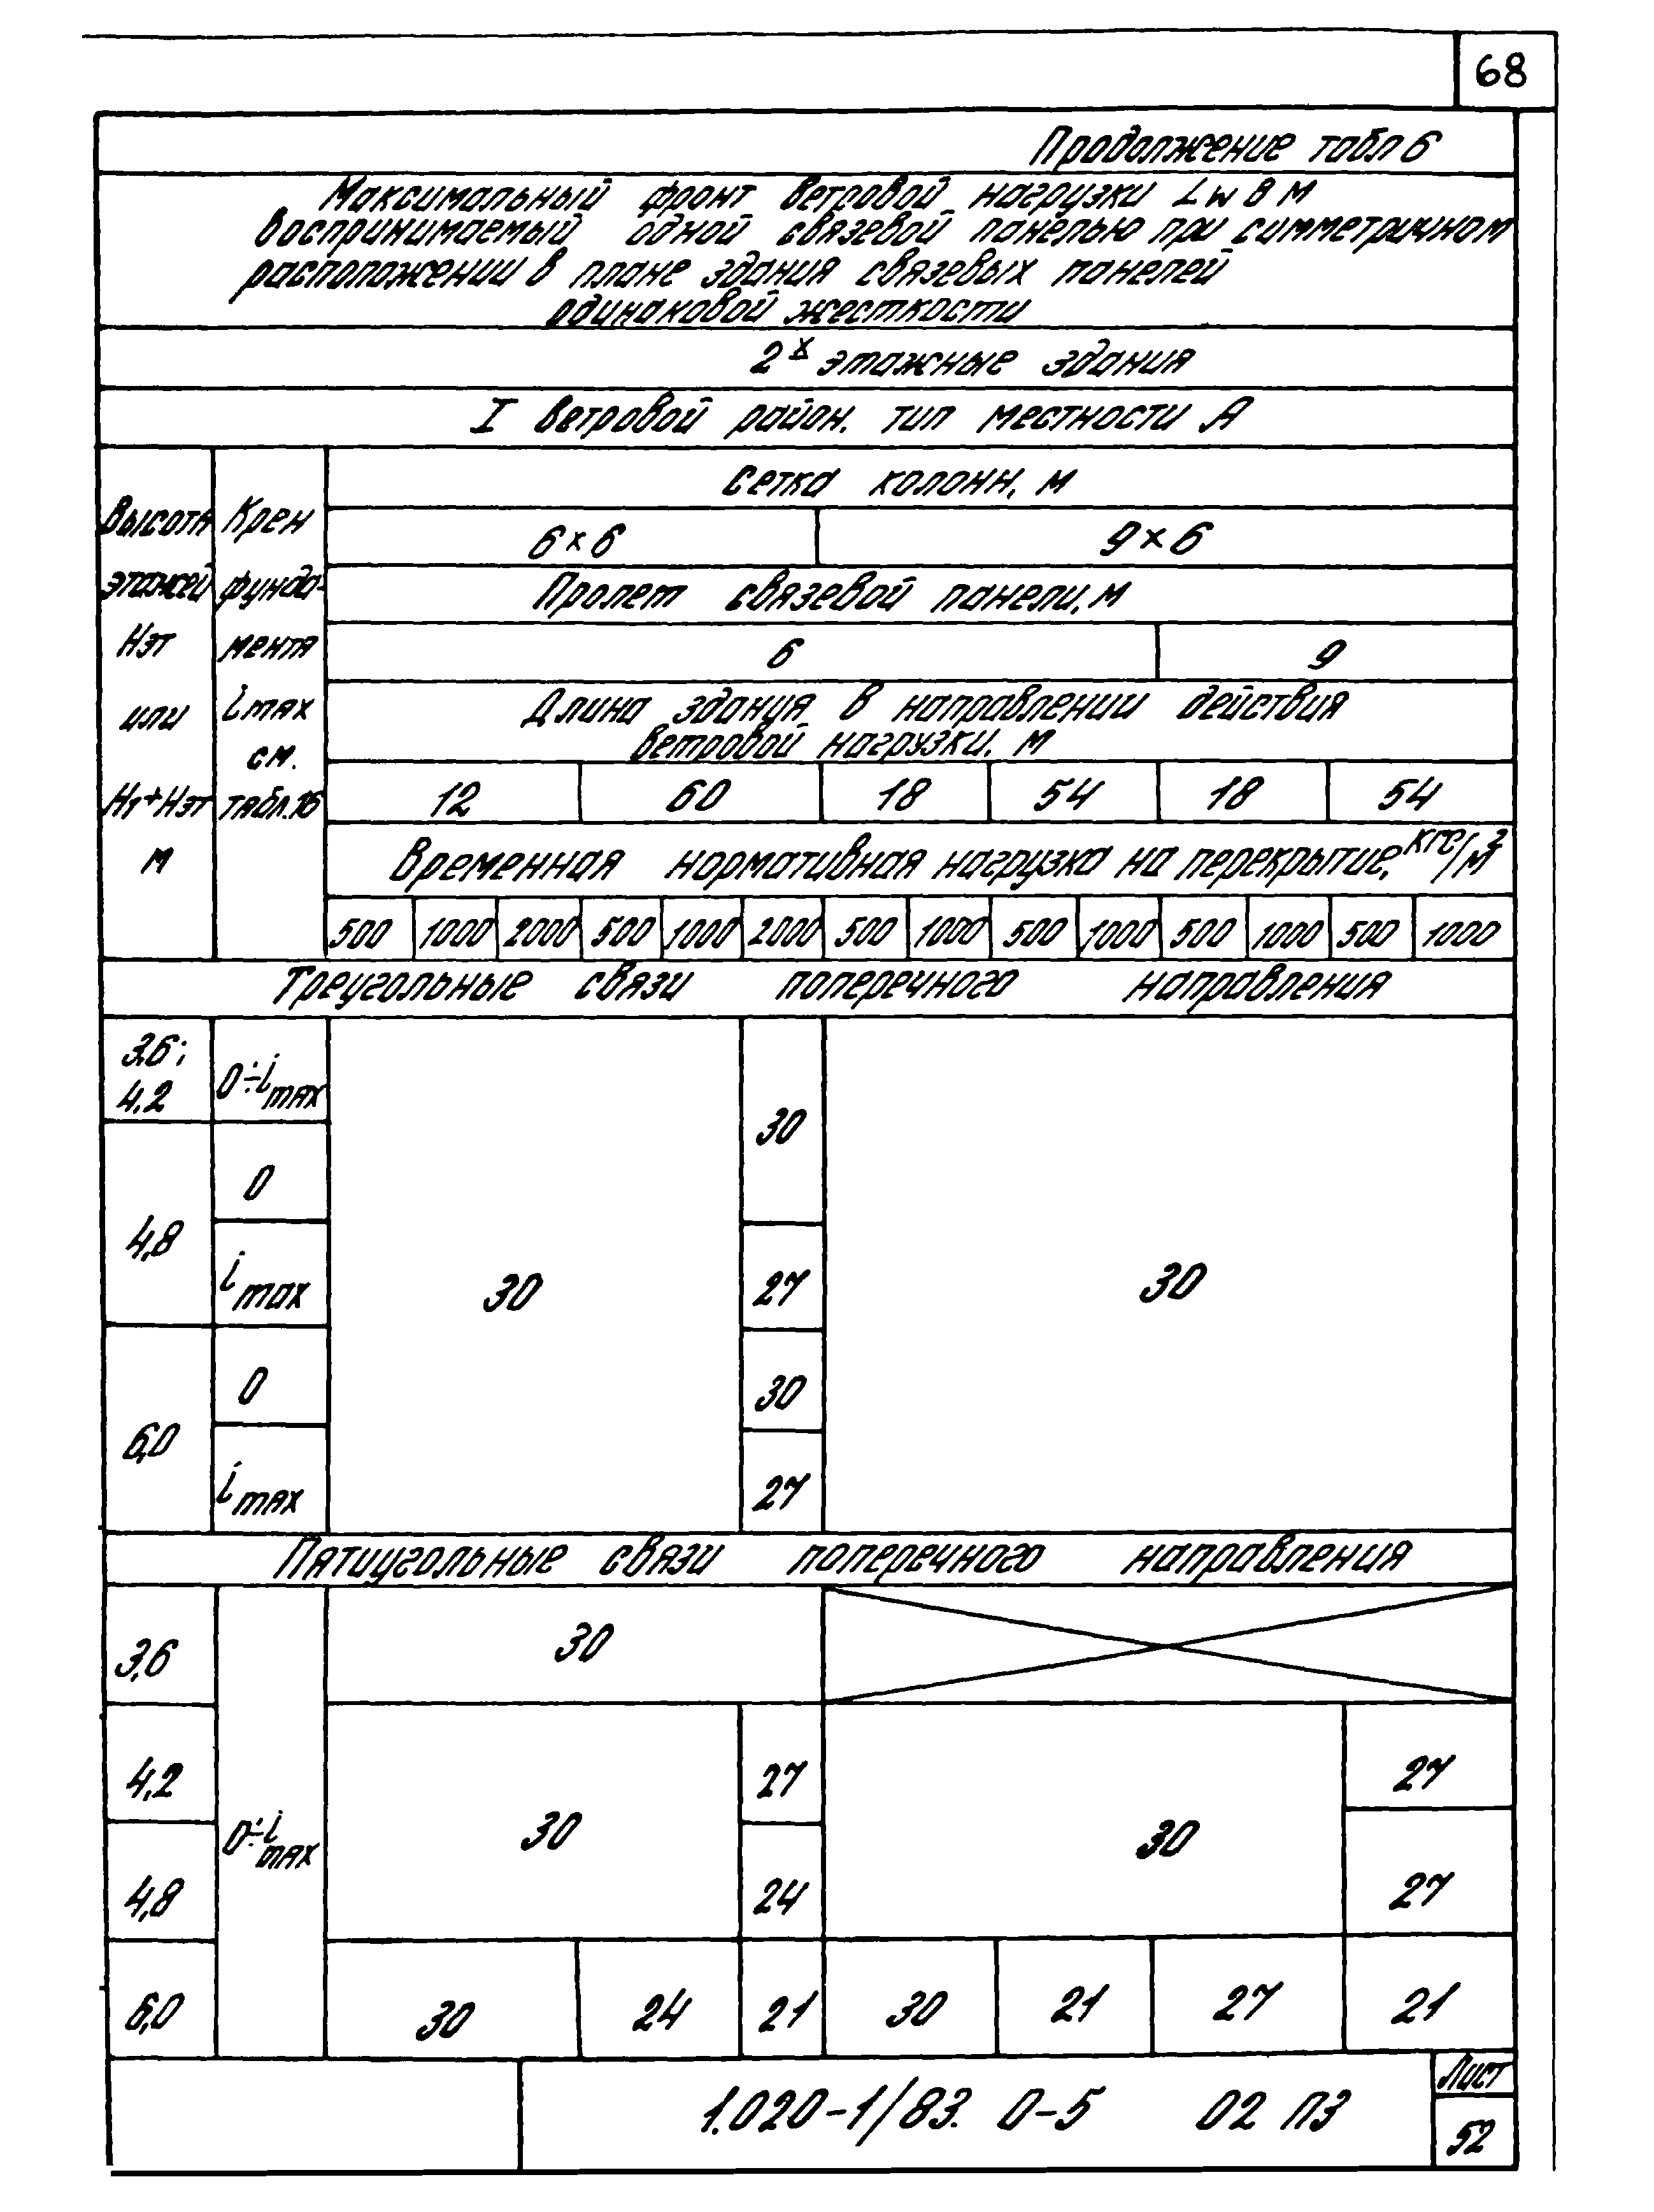 68
Продолжение табл 6
Максимальный фронт ветровой нагрузки Lw в м
воспринимаемый одной связевой панелью при симметричном
расположении в плане здания связевых панелей
одинаковой жесткости
2х этажные здания
I ветровой район. тип местности А
Высота этажей Нэт или Н1+Нэт м
Крен фунда-мента imax см. табл.16
Сетка колонн, м
6×6 9×6
Пролет связевой панели, м
6 9
Длина здания в направлении действия
ветровой нагрузки, м
12 60 18 54 18 54
Временная нормативная нагрузка на перекрытие, кгс/м²
500 1000 2000 500 1000 2000 500 1000 500 1000 500 1000 500 1000
Треугольные связи поперечного направления
3.6; 4.2 0÷imax 30 30 30
4,8 0
imax 27
6,0 0 30
imax 27
Пятиугольные связи поперечного направления
3,6 0÷imax 30
4,2 30 27 30 27
4,8 24 27
6,0 30 24 21 30 21 27 21
1.020-1/83. 0-5 02 ПЗ
Лист
52